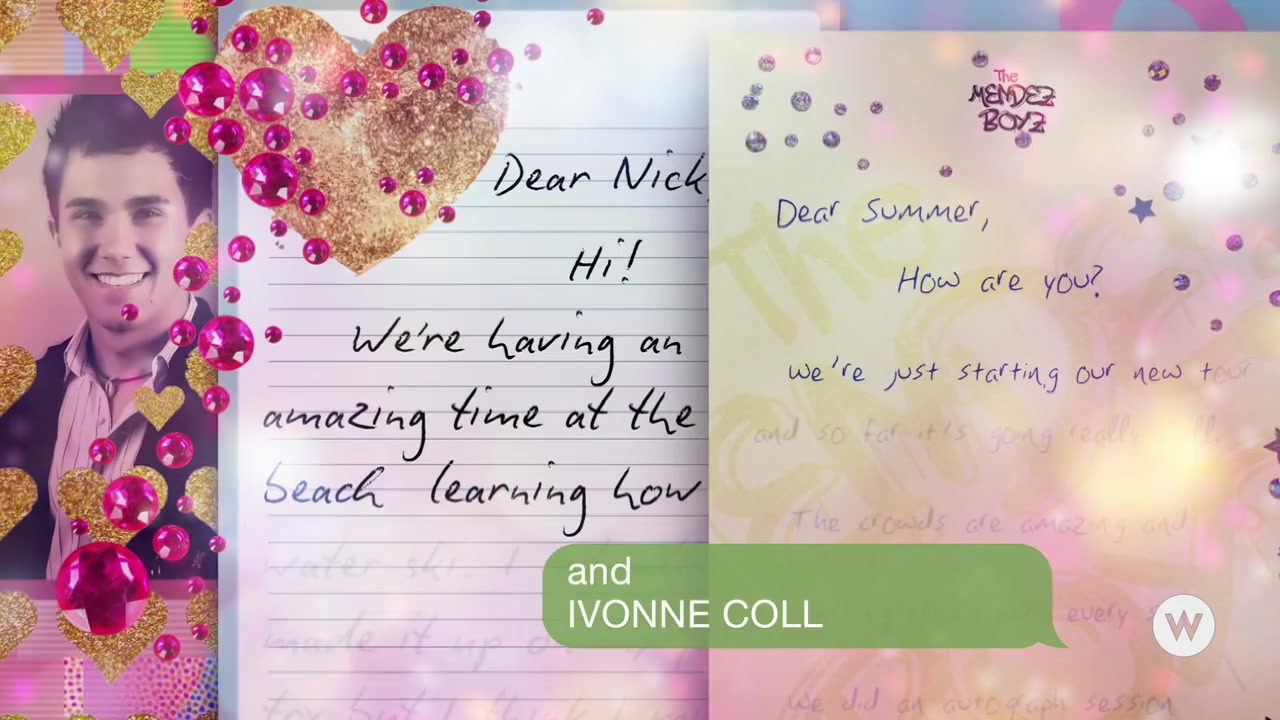 Dear Nick,
Hi!
We're having an
amazing time at the
beach learning how
water ski. I
made it up
try but I think I
The
MENDEZ
BOYZ
Dear Summer,
How are you?
we're just starting our new tour
and so far it's going really well.
The crowds are amazing and
every
we did an autograph session
and
IVONNE COLL
W